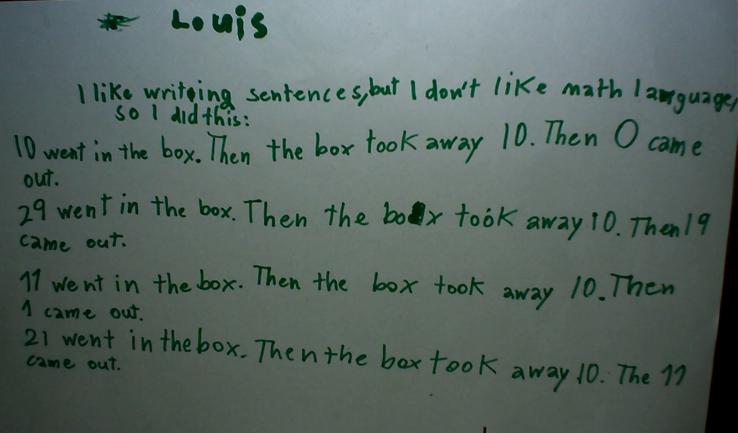 Louis
I like writing sentences, but I don't like math language,
so I did this:
10 went in the box. Then the box took away 10. Then 0 came
out.
29 went in the box. Then the box took away 10. Then 19
came out.
11 went in the box. Then the box took away 10. Then
1 came out.
21 went in the box. Then the box took away 10. The 11
came out.